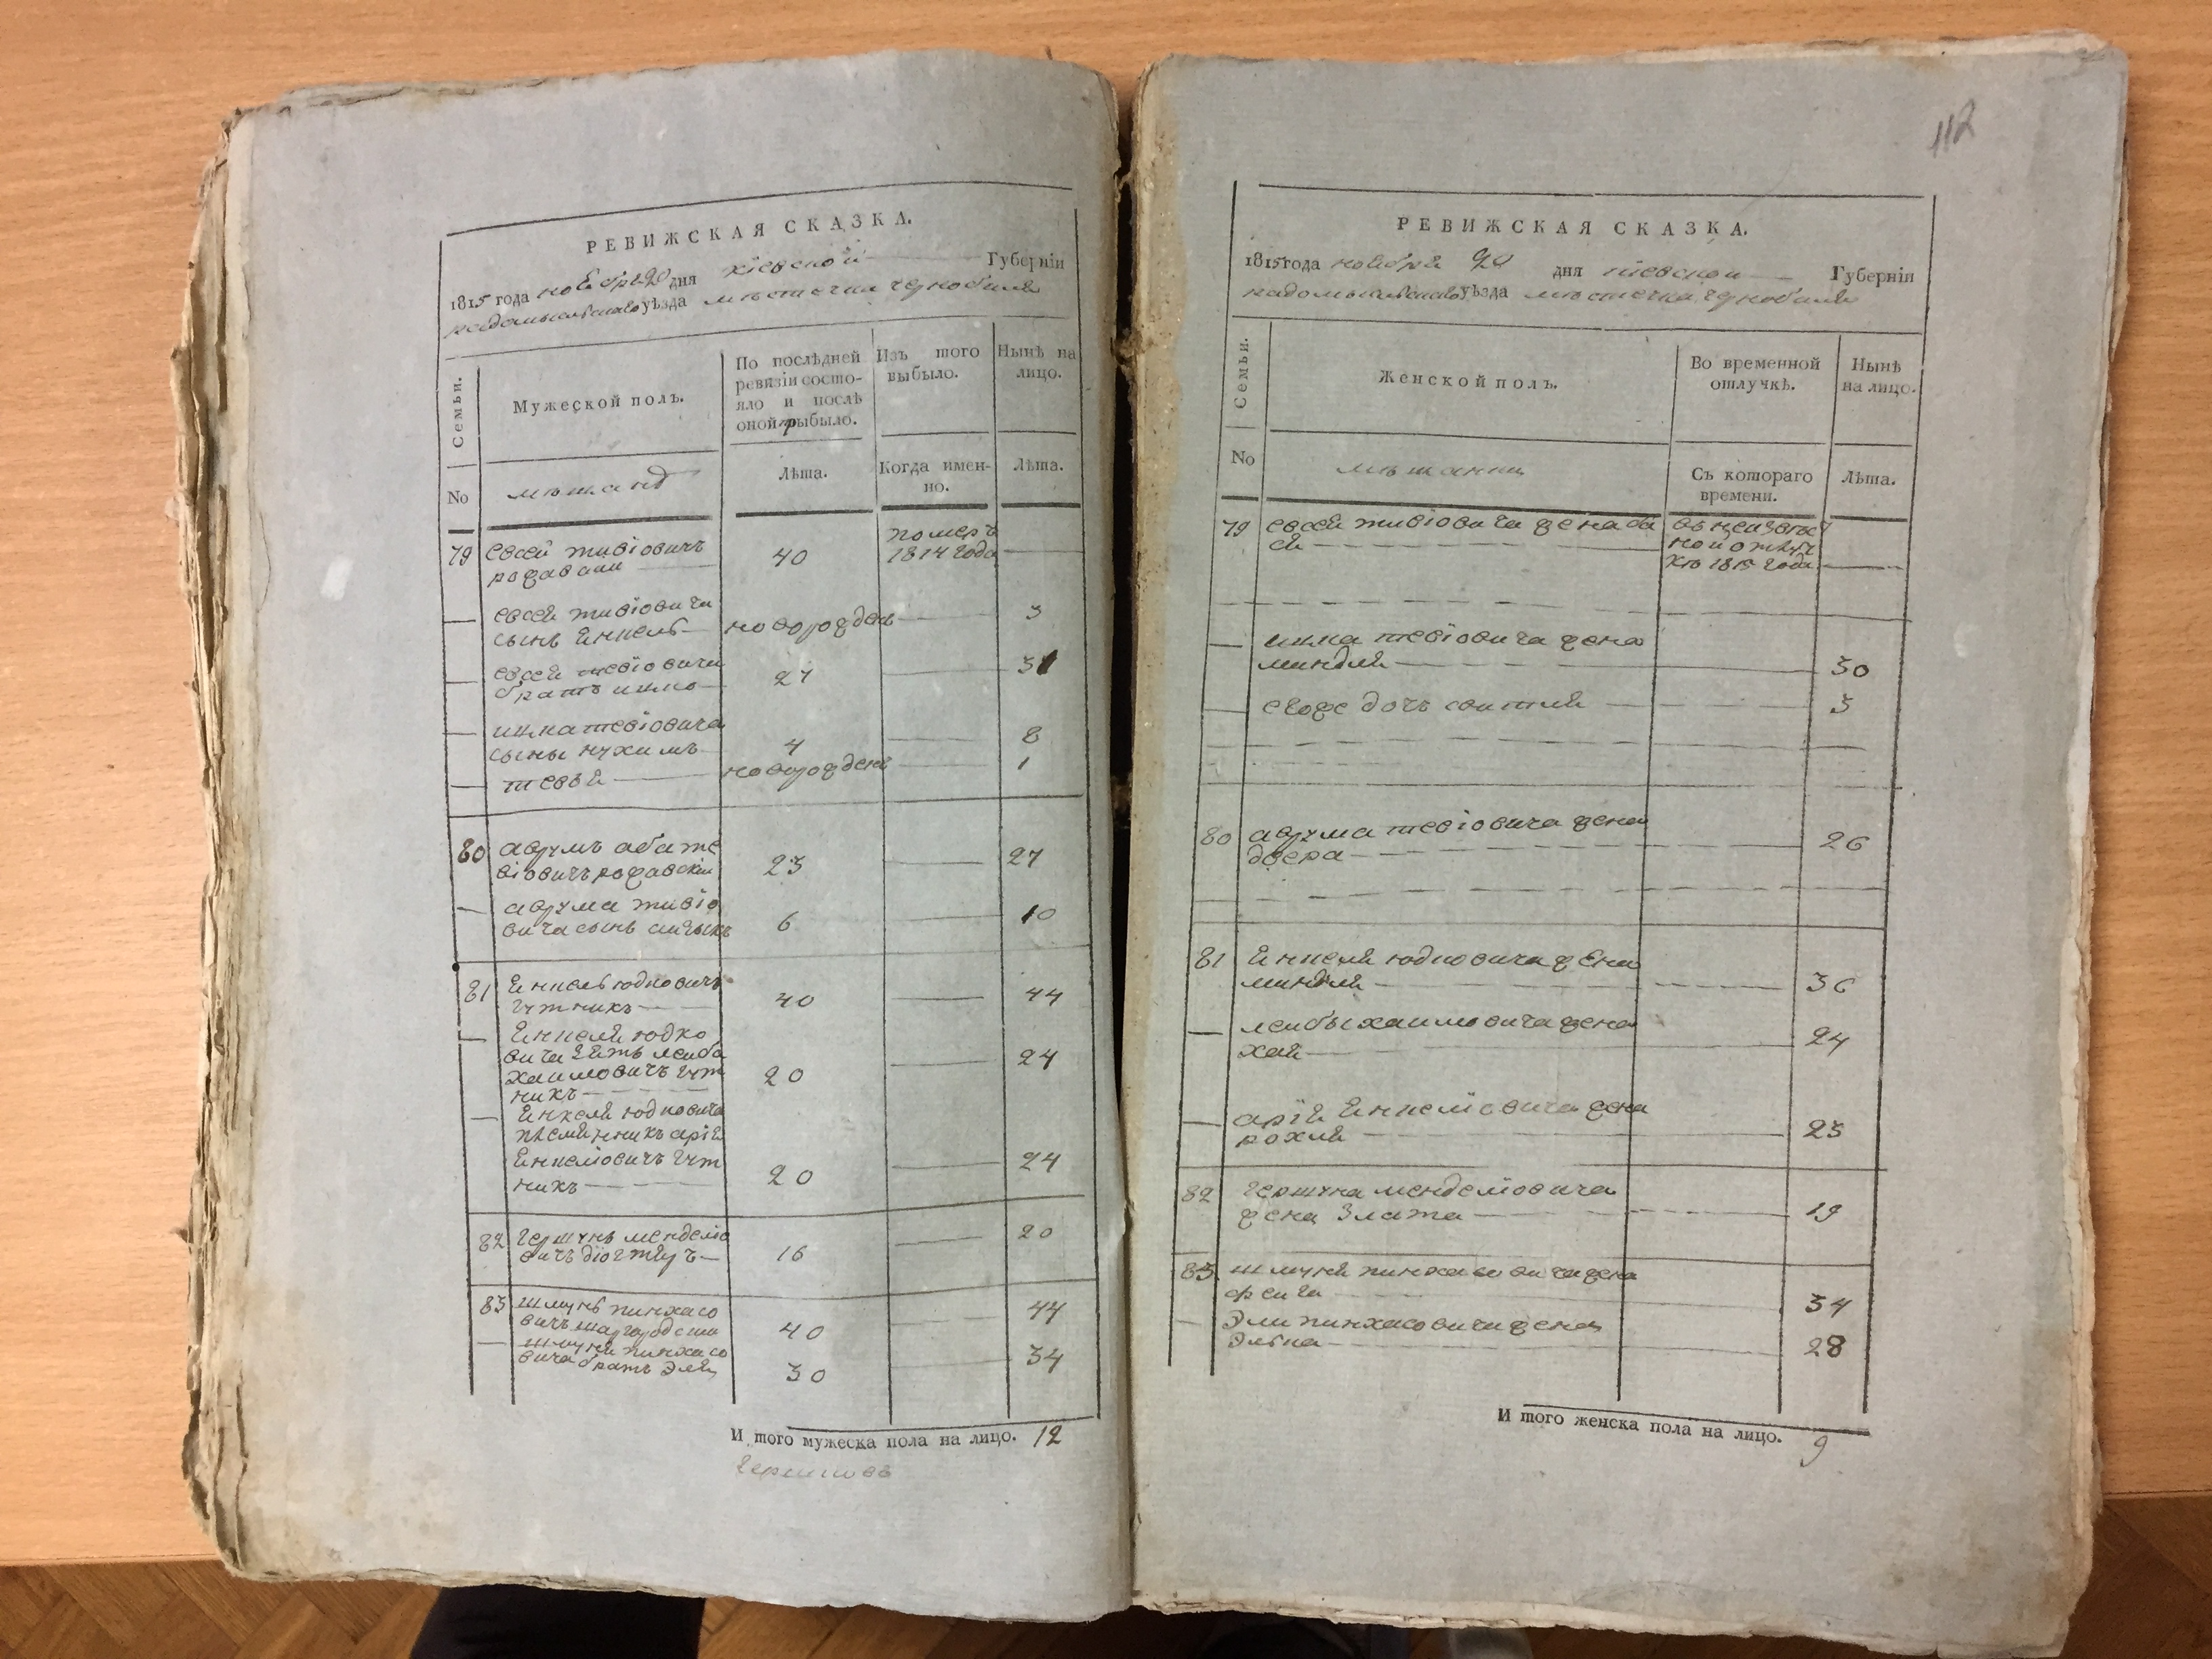 РЕВИЖСКАЯ СКАЗКА.
1815 года ноября 20 дня кіевской Губерніи
радомысльскаго уѣзда мѣстечка чернобиля
Семьи.
Мужеской полъ.
По послѣдней
ревизіи состо-
яло и послѣ
оной прыбыло.
Изъ того
выбыло.
Нынѣ на
лицо.
No
мѣщанъ
Лѣта.
Когда имен-
но.
Лѣта.
79 евсей тивіовичъ 40 померъ
1814 года
евсей тивіовича
сынъ Янкель новорожденъ 3
евсей тевіовича
братъ ицко 27 31
ицка тевіовича
сыны нухимъ 4 8
тевья новорожденъ 1
80 аврумъ аба те
віовичъ 23 27
аврума тивіо
вича сынъ 6 10
81 Янкель юдковичъ
гутникъ 40 44
Янкеля юдко
вича зять леиба
хаимовичъ гут
никъ 20 24
Янкеля юдковича
племянникъ арія
Янкеліовичъ гут
никъ 20 24
82 гершунъ менделіо
вичъ 16 20
83 шмунь пинхасо
вичъ шаргородски 40 44
шмуня пинхасо
вича братъ Эля 30 34
И того мужеска пола на лицо. 12
112
РЕВИЖСКАЯ СКАЗКА.
1815 года ноября 20 дня кіевской Губерніи
радомысльскаго уѣзда мѣстечка чернобиля
Семьи.
Женской полъ.
Во временной
отлучкѣ.
Нынѣ
на лицо.
No
мѣщанки
Съ котораго
времени.
Лѣта.
79 евсея тивіовича жена ба
ся
въ неизвѣст
ной отлуч
кѣ 1815 года
ицка тевіовича жена
миндля 30
егоже дочъ 3
80 аврума тевіовича жена
двера 26
81 Янкеля юдковича жена
миндля 36
леибы хаимовича жена
хая 24
арія Янкеліовича жена
рохля 23
82 гершуна менделіовича
жена Злата 19
83 шмуня пинхасовича жена
фейга 34
Эли пинхасовича жена
Элька 28
И того женска пола на лицо. 9